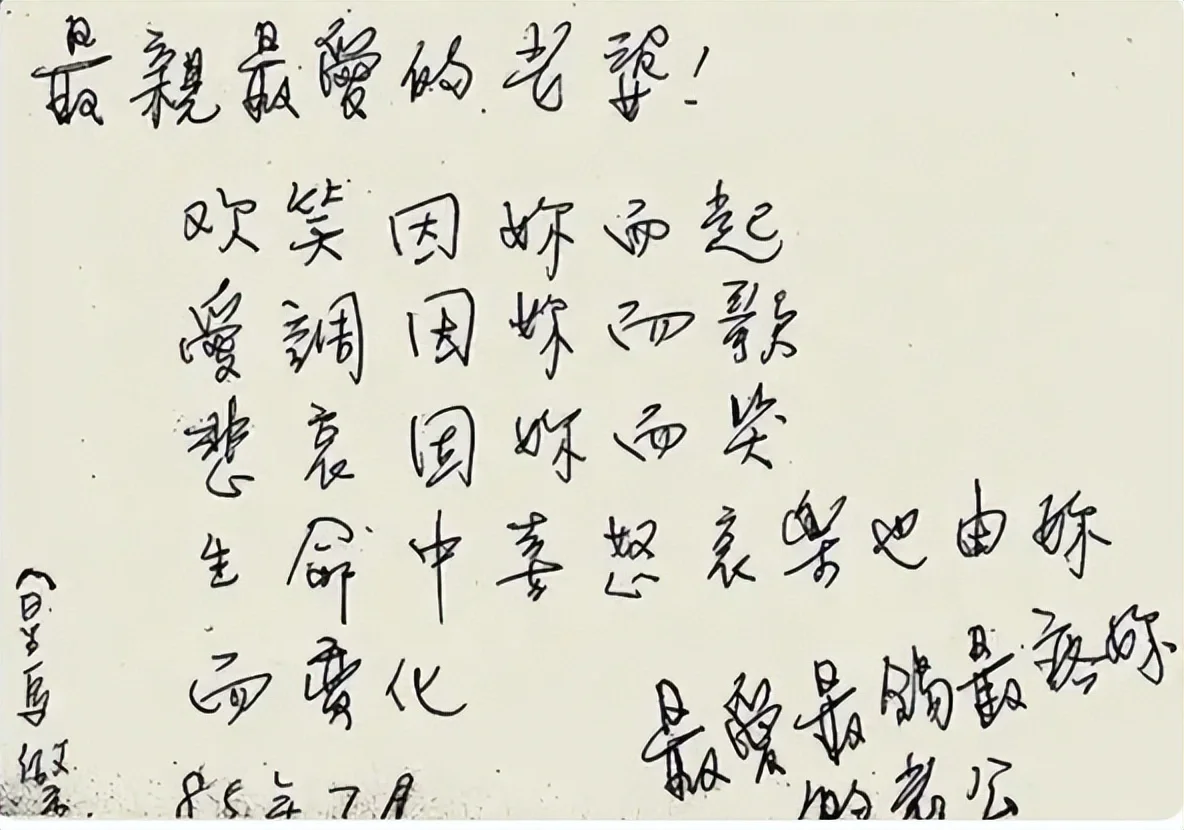 最親最愛的老婆!
欢笑因妳而起
愛調因妳而歌
悲哀因妳而哭
生命中喜怒哀樂也由妳
而變化
85年7月
最愛最錫最疼妳
的老公